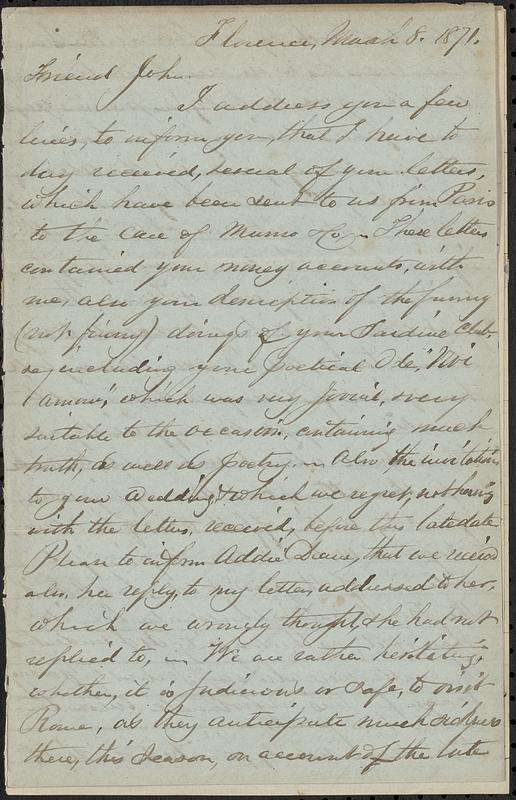 Florence, March 8. 1871.
Friend John.
I address you a few
lines, to inform you, that I have to
day received, several of your letters,
which have been sent to us from Paris
to the care of Munroe & Co, These letters
contained your money accounts, with
me, also your description of the funny
(not funny) doings of your Sardine Club,
including your poetical Ode, "Vive
l'amour," which was very jovial, & very
suitable to the occasion, containing much
truth, as well as poetry. Also the invitation
to your Wedding, & which we regret, not having
with the letters, received, before this late date
Please to inform Addie Deane, that we received
also, her reply, to my letter, addressed to her,
which we wrongly thought, she had not
replied to, We are rather hesitating,
whether, it is judicious or safe, to visit
Rome, as they anticipate much sickness
there, this season, on account of the late